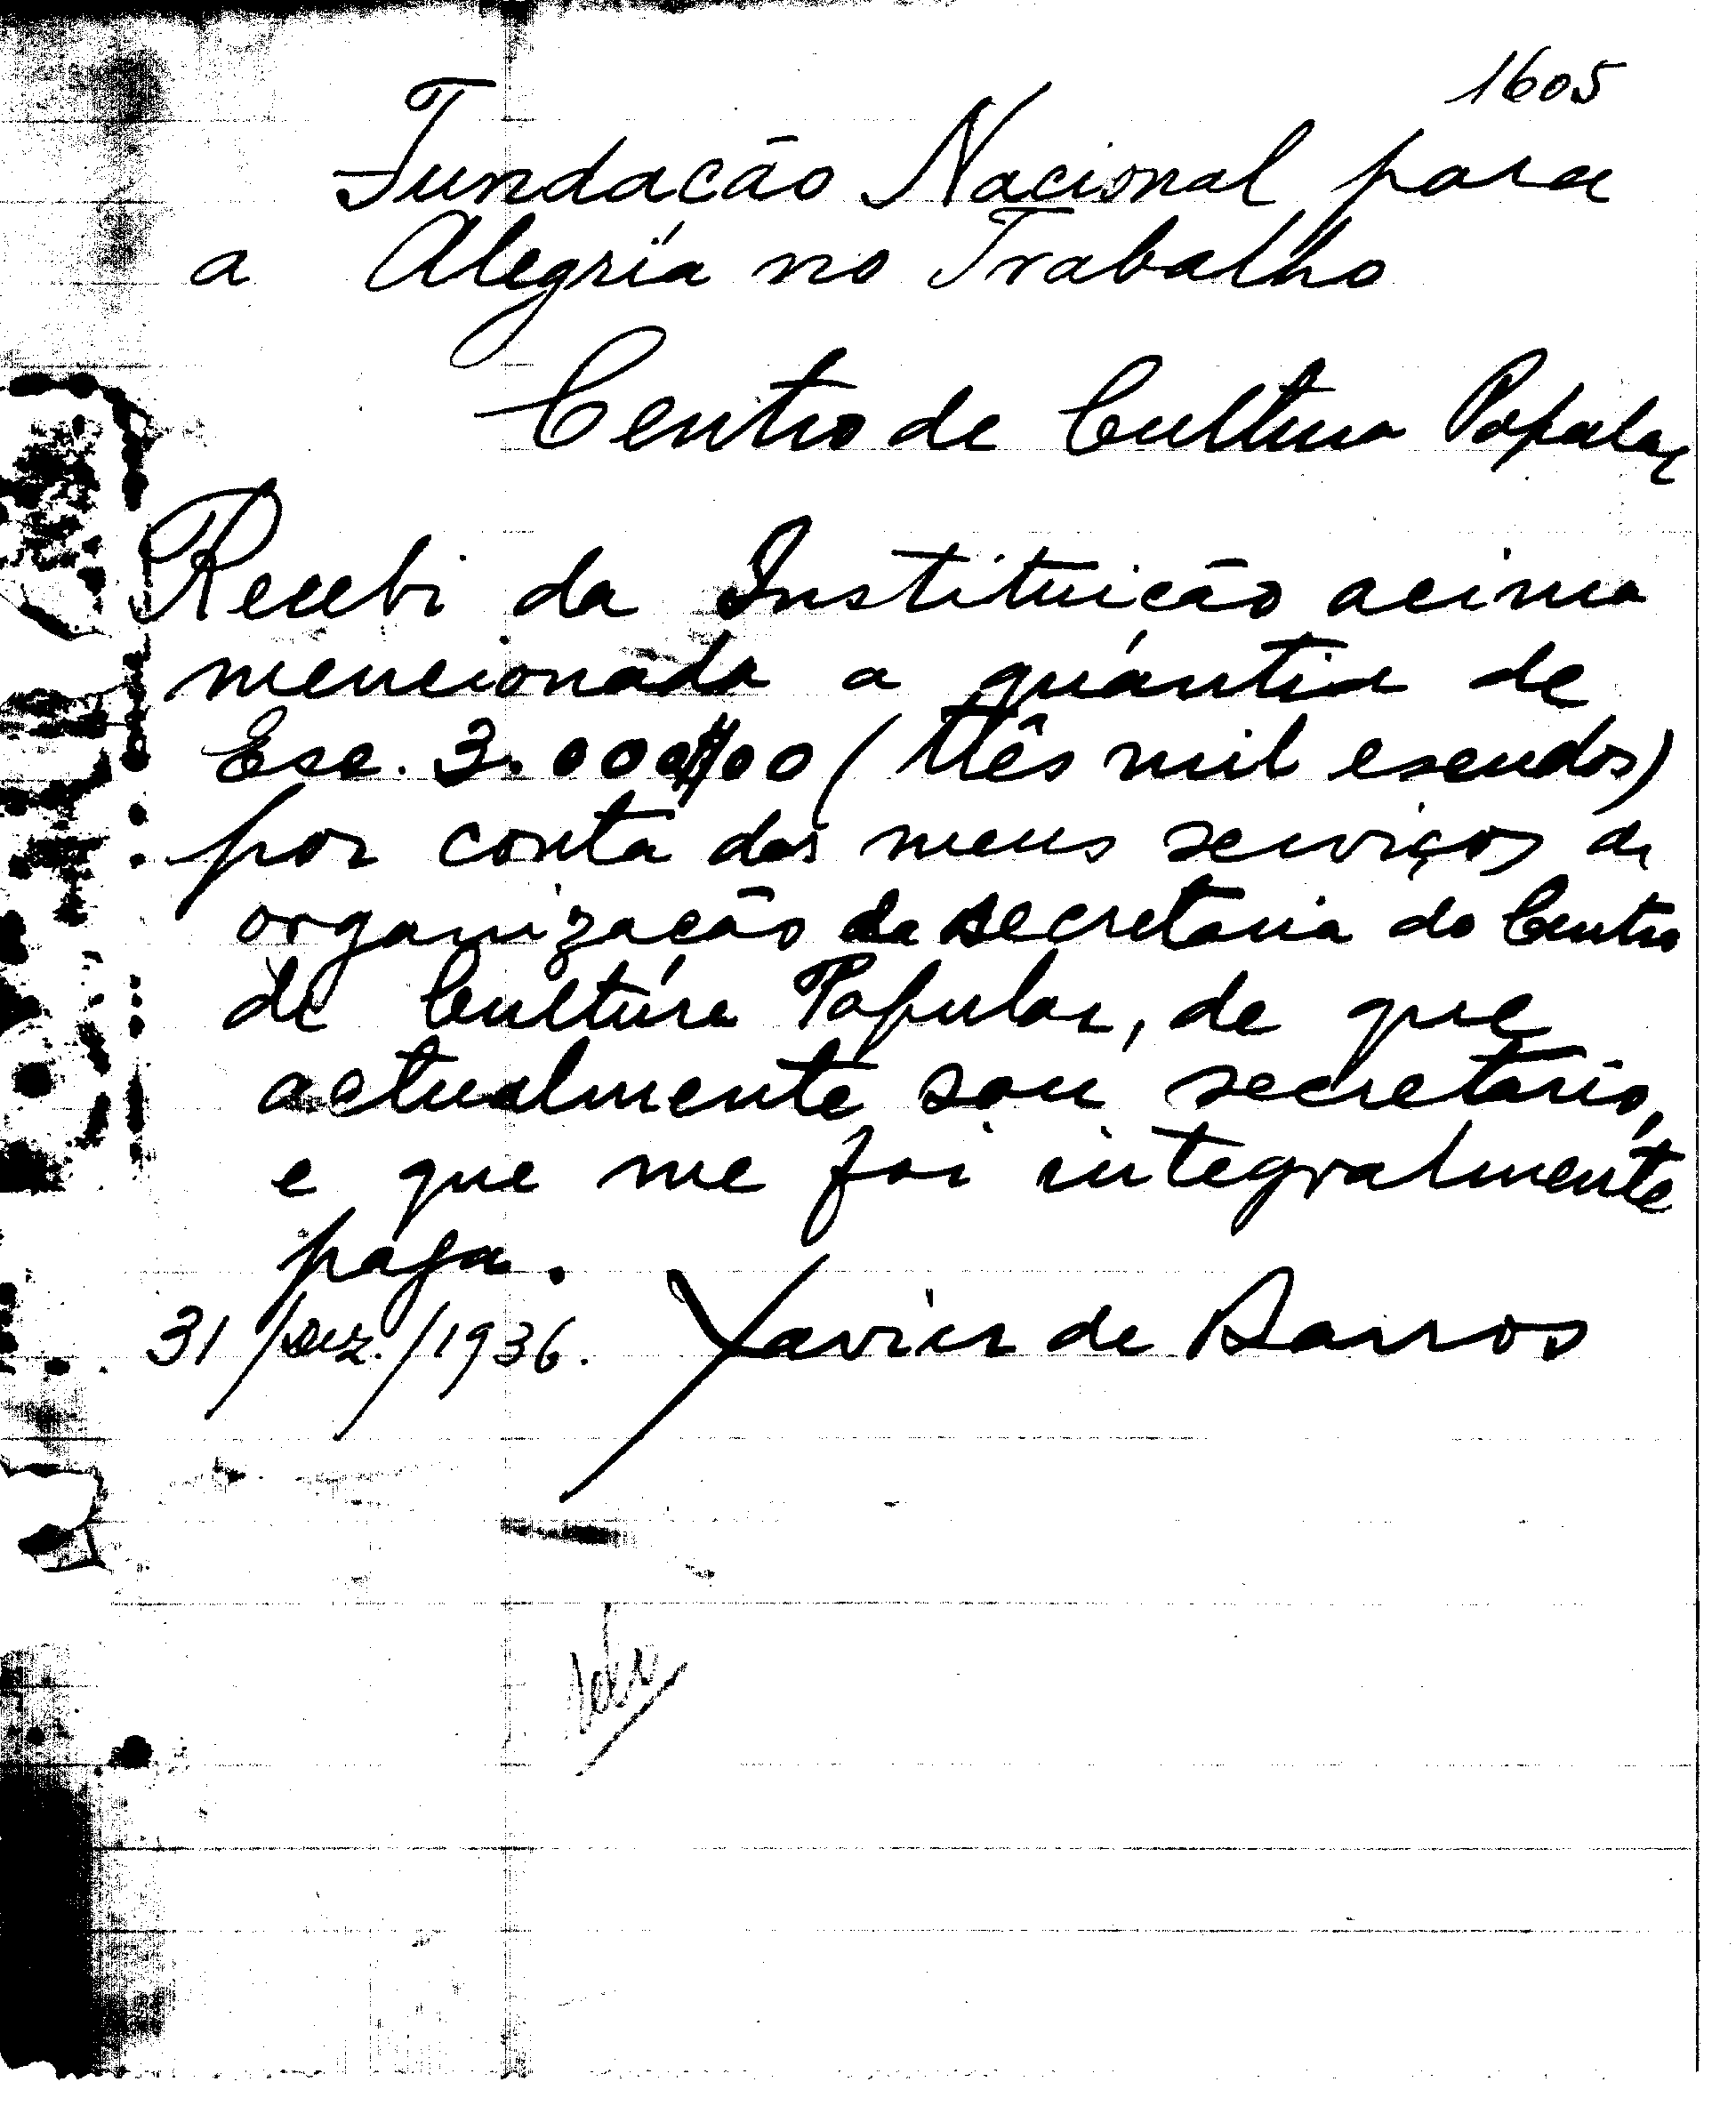 1605
Fundação Nacional para
a Alegria no Trabalho
Centro de Cultura Popular
Recebi da Instituição acima
mencionada a quantia de
Esc. 3.000$00 (três mil escudos)
por conta dos meus serviços de
organização da secretaria do Centro
de Cultura Popular, de que
actualmente sou secretário,
e que me foi integralmente
paga.
31/Dez./1936. Xavier de Barros